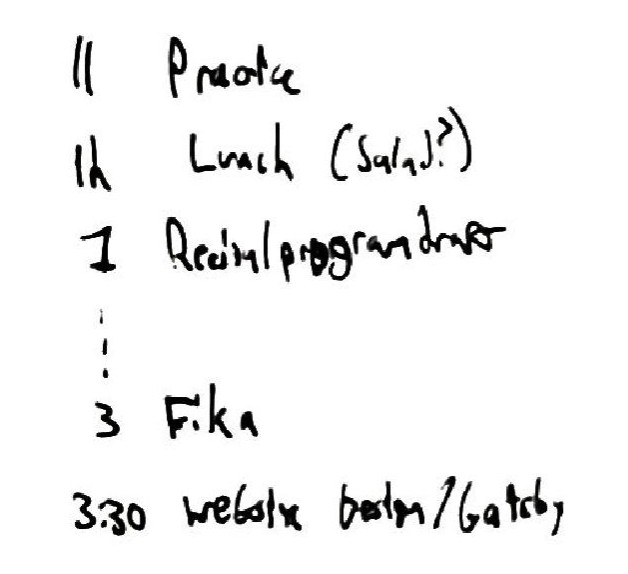 11 Practice
12 Lunch (Salad?)
1 Recital program draft
3 Fika
3:30 website design/Gatsby